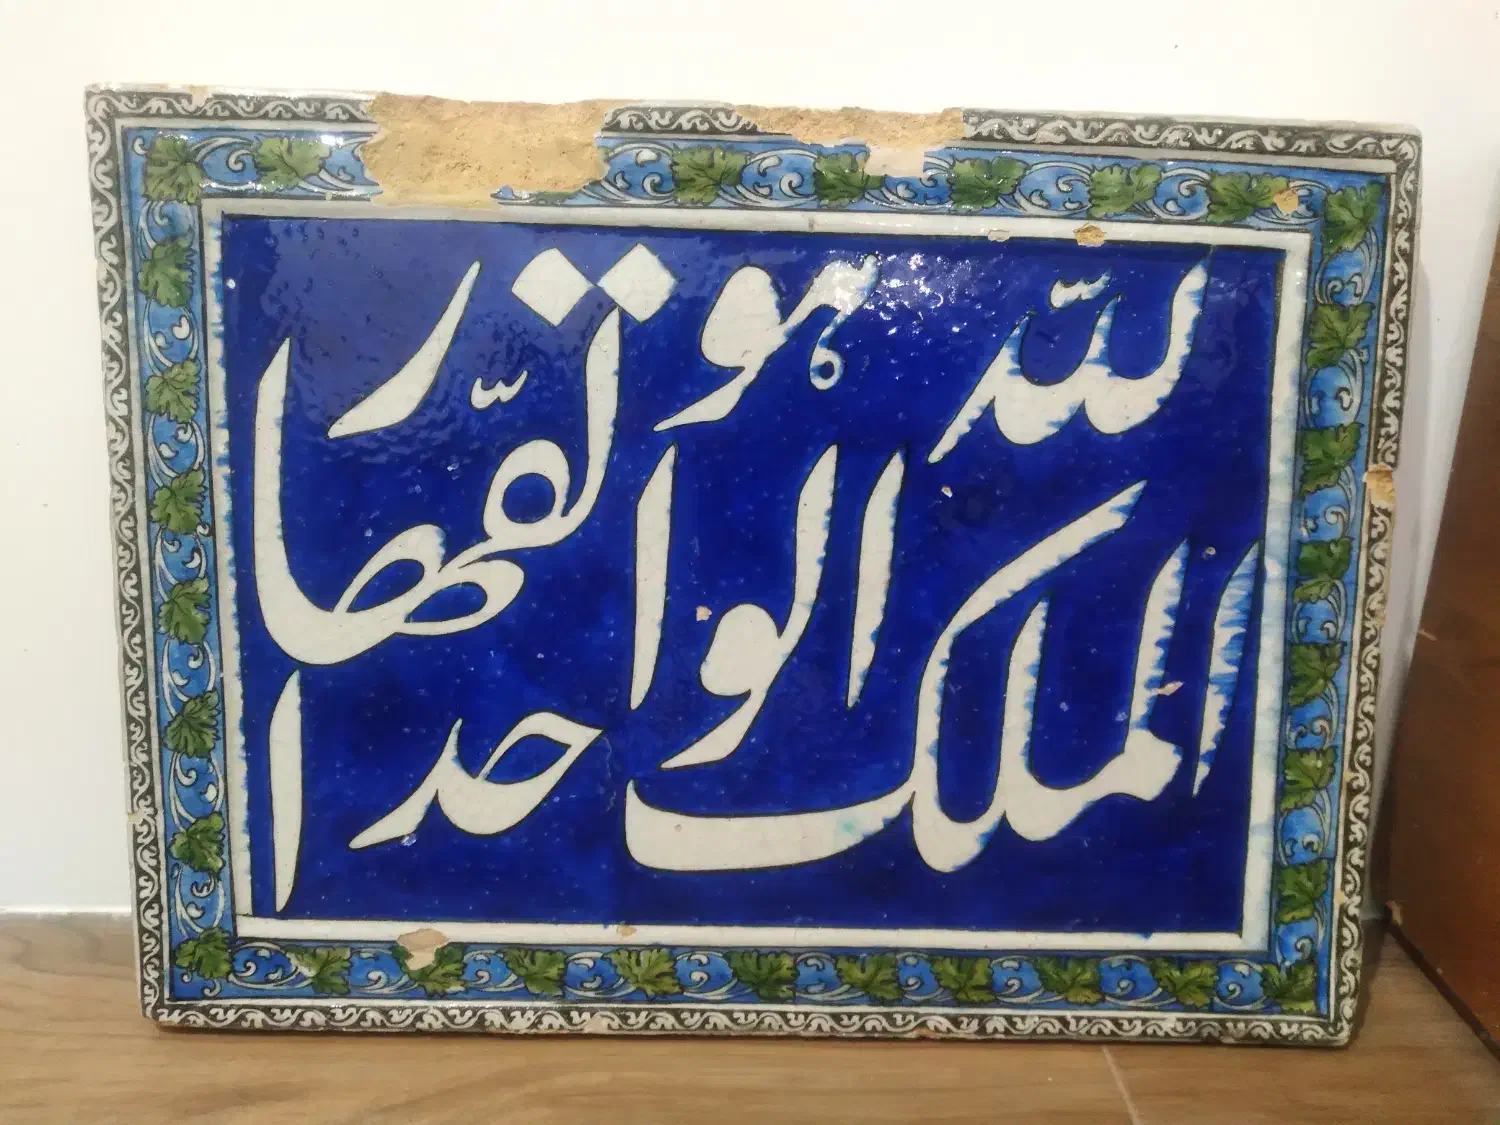 الملک للّه هو الواحد القهّار